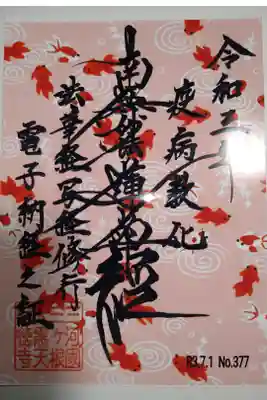 令和三年
疫病教化
南無妙法蓮華経
法華経写経修行
電子納経之証
R3.7.1 No.377